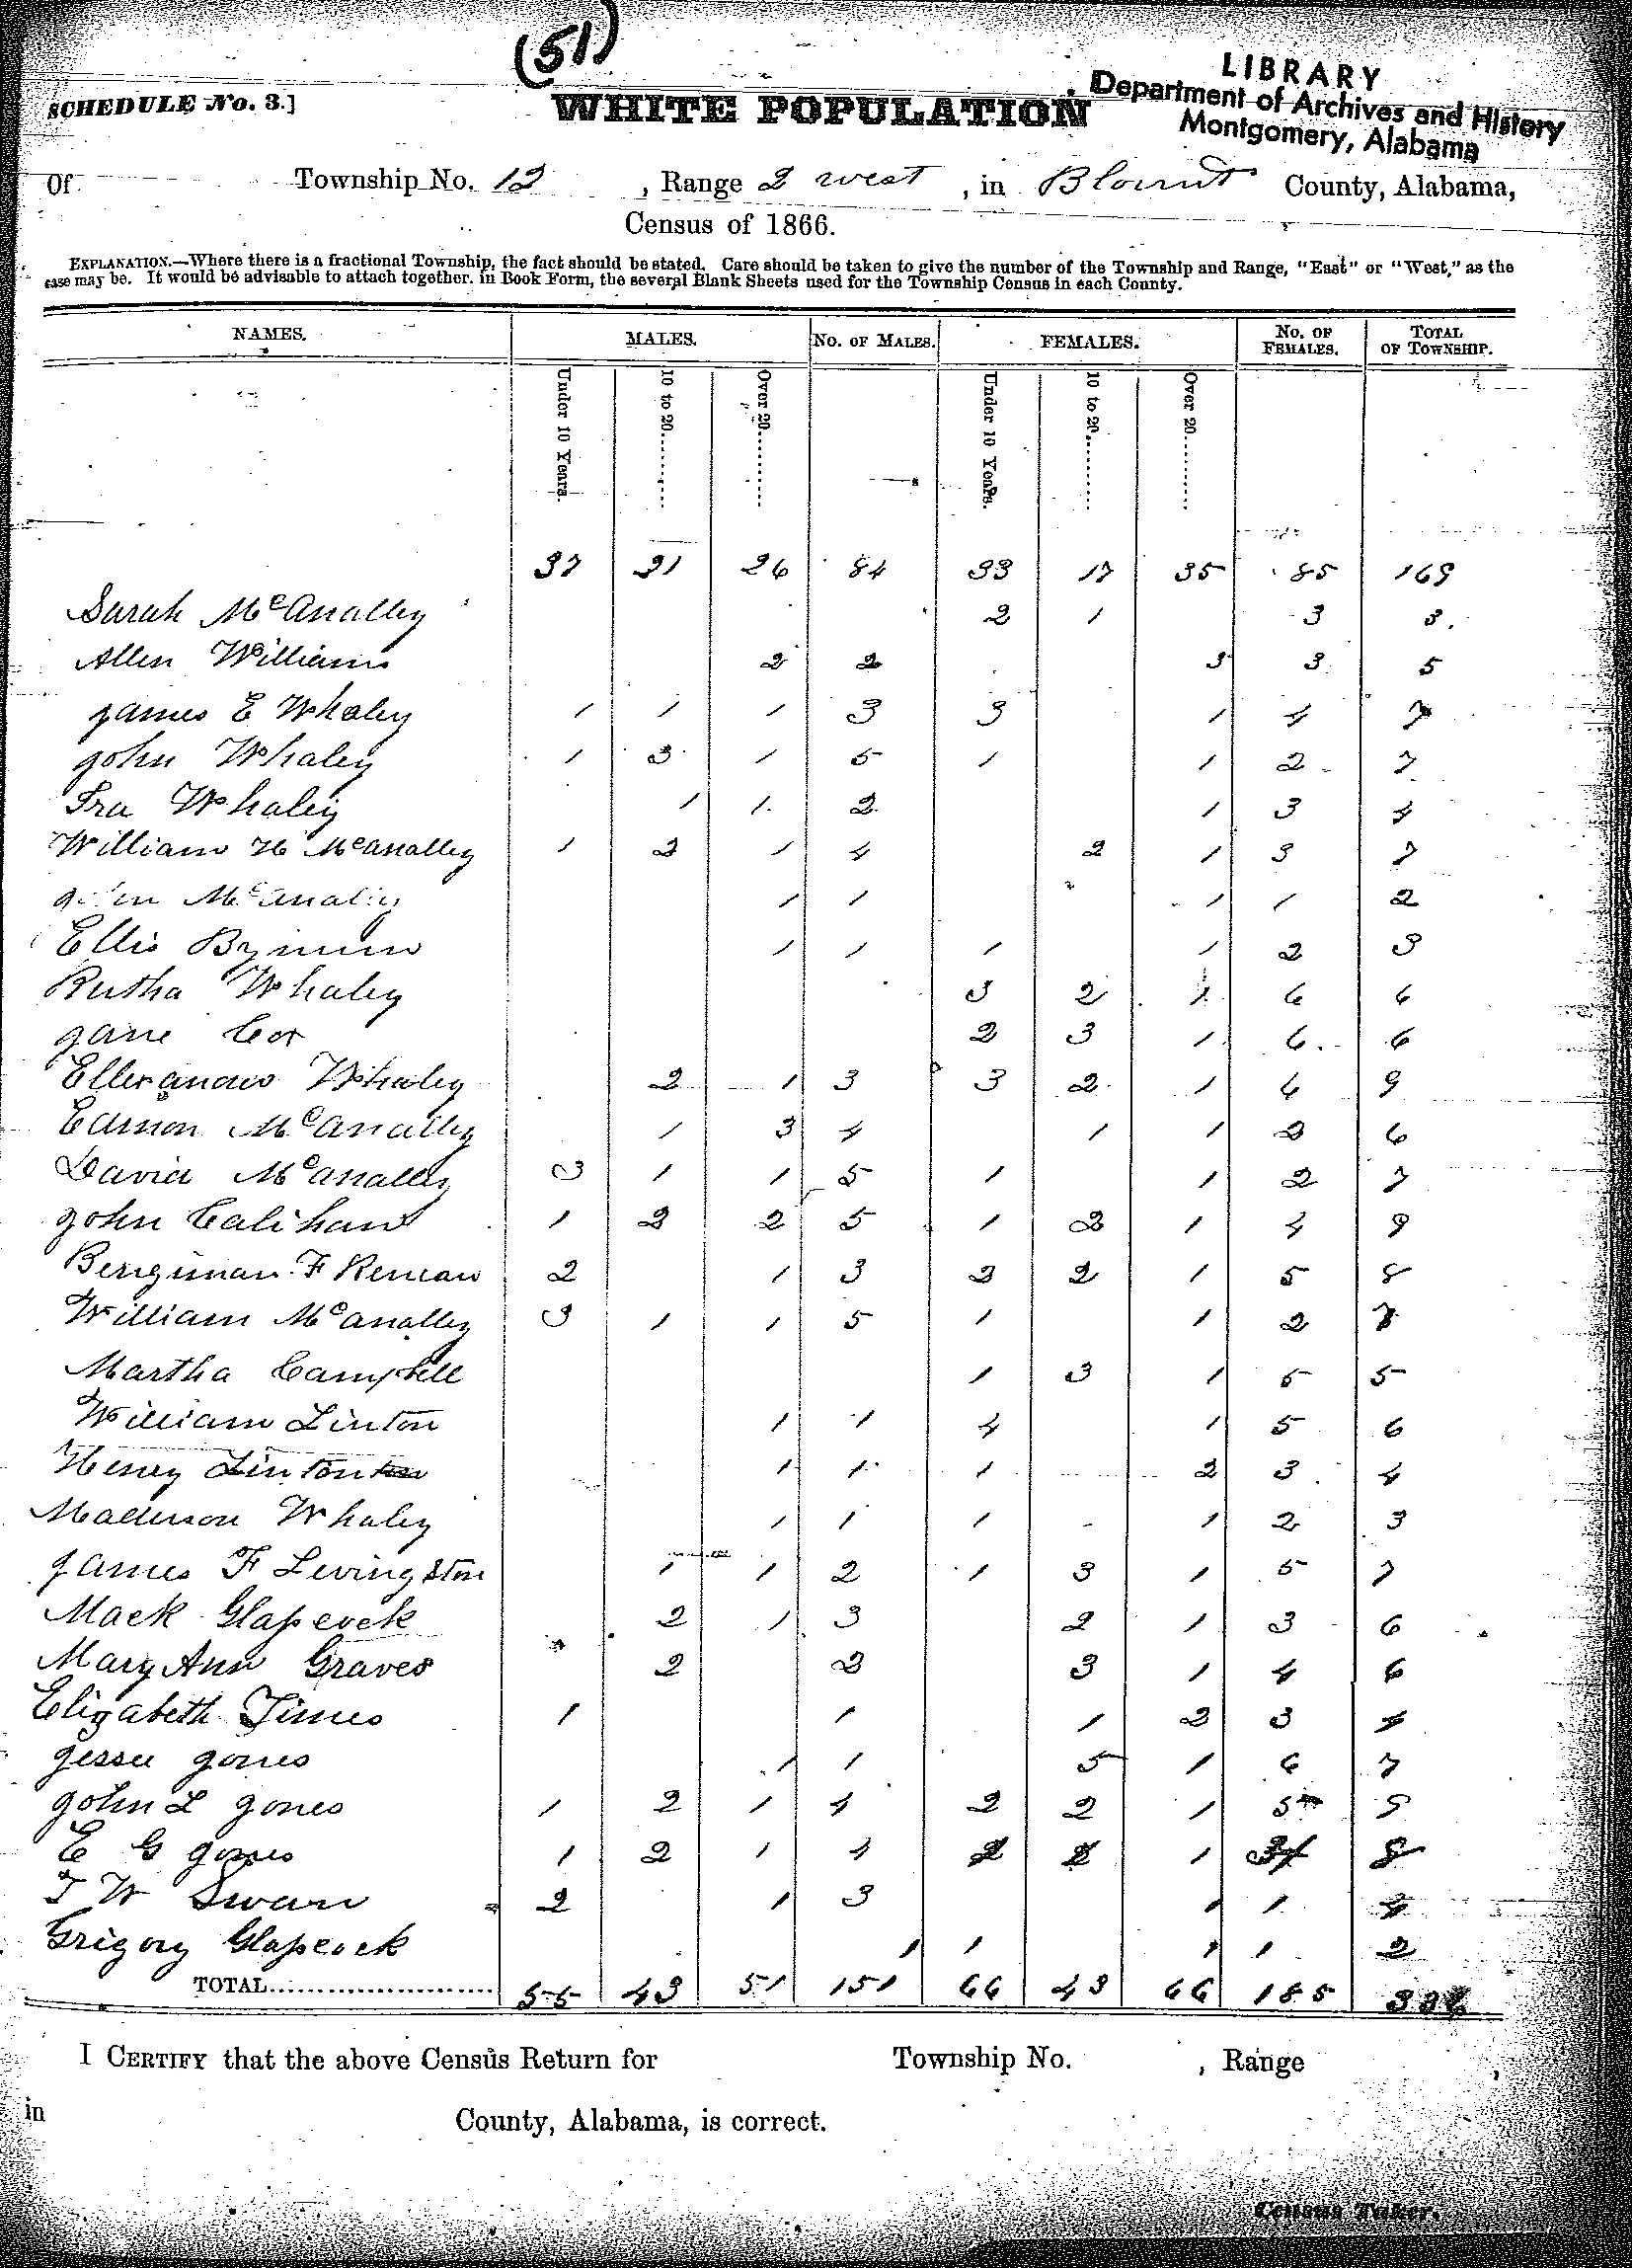 (51)
LIBRARY
Department of Archives and History
Montgomery, Alabama
SCHEDULE No. 3.]
WHITE POPULATION
Of Township No. 12, Range 2 west, in Blount County, Alabama,
Census of 1866.
EXPLANATION.—Where there is a fractional Township, the fact should be stated. Care should be taken to give the number of the Township and Range, "East" or "West," as the
case may be. It would be advisable to attach together, in Book Form, the several Blank Sheets used for the Township Census in each County.
NAMES. MALES. No. of Males. FEMALES. No. of Females. Total of Township.
Under 10 Years. 10 to 20 Over 20 Under 10 Years. 10 to 20 Over 20
37 21 26 84 33 17 35 85 169
Sarah McAnalley 2 1 3 3
Allen Williams 2 2 3 3 5
James E Whaley 1 1 1 3 3 1 4 7
John Whaley 1 3 1 5 1 1 2 7
Ira Whaley 1 1 2 1 3 4
William H McAnalley 1 2 1 4 2 1 3 7
McAnalley 1 1 1 1 2
Ellis Bynum 1 1 1 1 2 3
Rutha Whaley 3 2 1 6 6
Jane Cox 2 3 1 6 6
Whaley 2 1 3 3 2 1 6 9
Edmon McAnalley 1 3 4 1 1 2 6
David McAnalley 3 1 1 5 1 1 2 7
John Calihan 1 2 2 5 1 2 1 4 9
Bengiman F 2 1 3 2 2 1 5 8
William McAnalley 3 1 1 5 1 1 2 7
Martha Campbell 1 3 1 5 5
William Linton 1 1 4 1 5 6
Henry Linton 1 1 1 2 3 4
Whaley 1 1 1 1 2 3
James F Levingston 1 1 2 1 3 1 5 7
Mack Glascock 2 1 3 2 1 3 6
Mary Ann Graves 2 2 3 1 4 6
Elizabeth Times 1 1 1 2 3 4
Jesse Jones 1 1 5 1 6 7
John L Jones 1 2 1 4 2 2 1 5 9
E G Jones 1 2 1 4 1 8
T W Swan 2 1 3 1 1 4
Grigory Glascock 1 1 1 1 2
TOTAL 55 43 51 151 66 43 66 185
I CERTIFY that the above Census Return for Township No. , Range ,
in County, Alabama, is correct.
Census Taker.